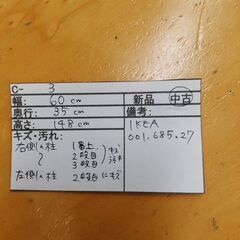 C- 3
幅: 60 cm
奥行: 35 cm
高さ: 148 cm
キズ・汚れ:
右側の柱 1番上
2段目
3段目
キズ
汚れ
左側の柱 2段目にキズ
新品 中古
備考:
IKEA
001.685.27